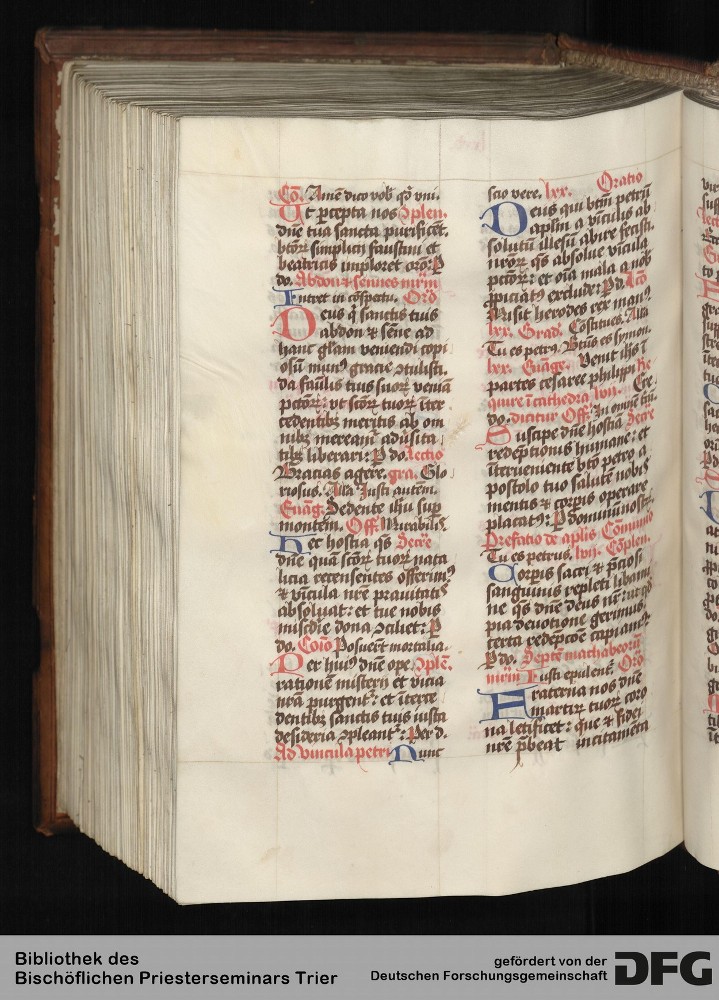 Co͞. Ame͞ dico vob̉ qđ vni.
Ut p̱cepta nos ꝯplen.
dn͞e tua sancta purificēt.
btoꝝ simplicij faustini et
beatricis imploret oro͞: P
do. Abdon ⁊ sennes mr͞m
Intret in co͞spectu. Oro͞
Deus q̇ sanctis tuis
abdon ⁊ sēne ad
hanc glam veniendi copi
osu͞ mun᷒ gracie ꝯtulisti.
da fa͞ulis tuis suoꝝ venia͞
pctoꝝ: vt scoꝝ tuoꝝ i͞ter
cedentibꝫ meritis ab om
nibꝫ meream᷒ adu͞sita
tibꝫ liberari: P do. lectio
Gracias agere. gra. Glo
riosus. Alla Iusti autem.
Eua͞g. Sedente ihu sup̱
montem. Off. Mirabil᷒
Hec hostia qs Secre͞
dn͞e qua͞ sctoꝝ tuoꝝ nata
licia recensentes offerim᷒
⁊ vi͞cula nr͞e prauitatis
absoluat: et tue nobis
mi͞sc͞die dona ꝯciliet: P
do. Coīo Posuer͞t mortalia.
Per hui᷒ dn͞e ope. ꝯple͞.
rationem misterij et vicia
nr͞a purgent᷒: et i͞terce
dentibꝫ sanctis tuis iusta
desideria ꝯpleant᷒: Per d.
Ad vincula petri Nunc
scio vere. lxx. Oratio
Deus qui btm͞ petru͞
aplm͞ a vi͞culis ab
solutu͞ illesu͞ abire fecisti.
nr͞oꝝ qs absolue vi͞cula
pctoꝝ: et oi͞a mala a nob̉
p̱piciat᷒ exclude: P d. Lc͞o
Misit herodes rex man᷒.
lxx. Grad. Co͞stitues. Alla
Tu es petr᷒. Bt͞us es symon.
lxx. Eua͞ge. Venit ihs i͞
partes cesaree philippi Re
quire i͞ cathedra lvii. Cre
do. dicitur Off. In omne͞ t͞ra.
Suscipe dn͞e hostia͞ Secre
redeptionis humane: et
i͞terueniente bto petro a
postolo tuo salute͞ nobis
mentis ⁊ corp̱is operare
placat᷒: P dominu͞ nostr.
Prefatio de ap͞lis Co͞munio
Tu es petrus. lvij. Co͞plen.
Corp̱is sacri ⁊ p̱ciosi
sanguinis repleti libami
ne qs dn͞e deus nr͞: ut qđ
pia deuotione gerimus
certa redep͞co͞e capiam᷒
P do. Septe͞ machabeoru͞
mr͞m Iusti epulent᷒. Oro͞
Fraterna nos dn͞e
martiru͞ tuoꝝ coro
na letificet: que ⁊ fidei
nr͞e p̱beat incitame͞ta
Bibliothek des
Bischöflichen Priesterseminars Trier
gefördert von der
Deutschen Forschungsgemeinschaft
DFG